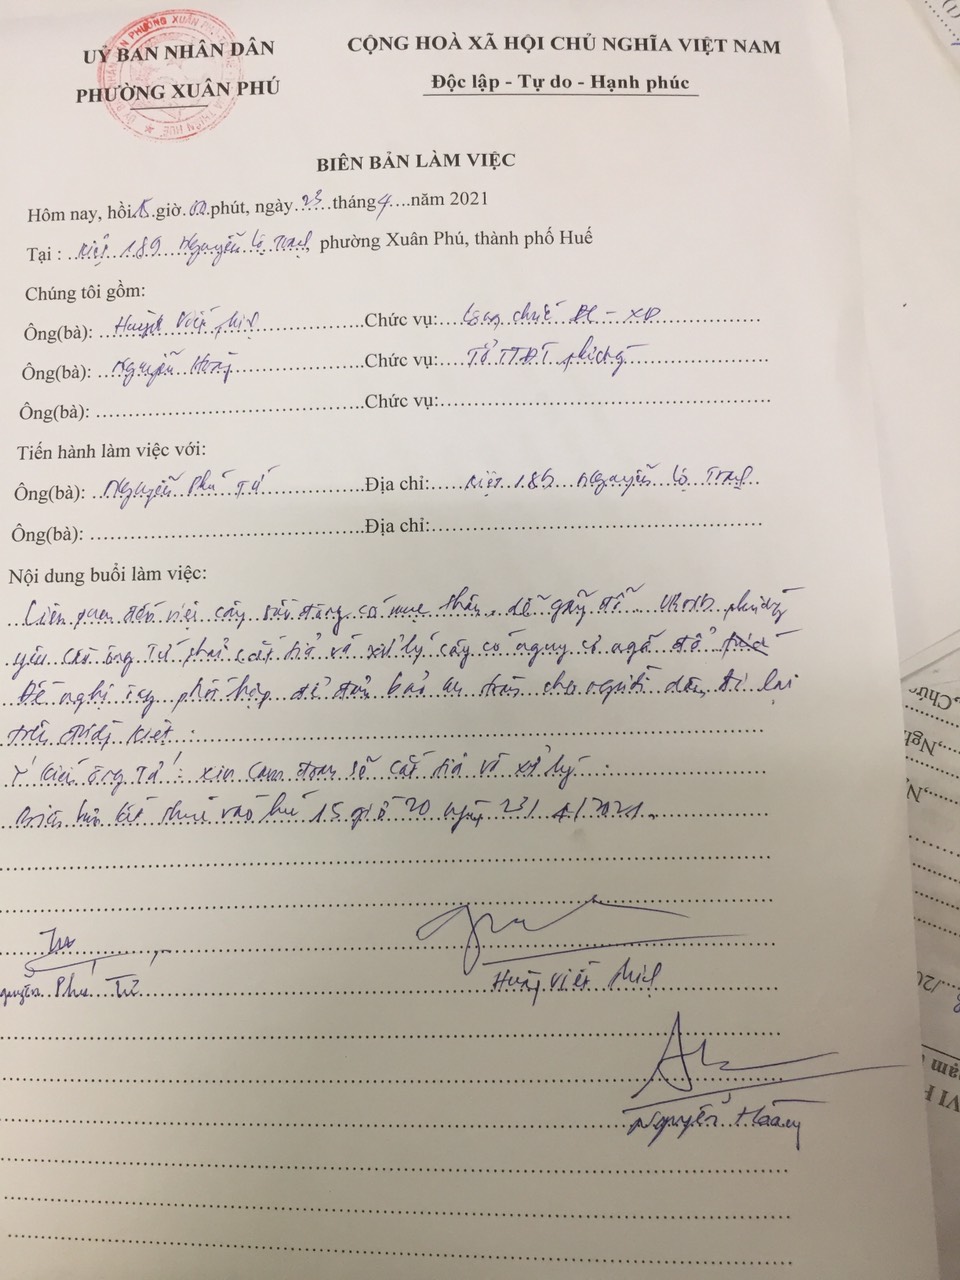 UỶ BAN NHÂN DÂN
PHƯỜNG XUÂN PHÚ
CỘNG HOÀ XÃ HỘI CHỦ NGHĨA VIỆT NAM
Độc lập - Tự do - Hạnh phúc
BIÊN BẢN LÀM VIỆC
Hôm nay, hồi 15 giờ 00 phút, ngày 23 tháng 4 năm 2021
Tại : Kiệt 189 Nguyễn Lộ Trạch, phường Xuân Phú, thành phố Huế
Chúng tôi gồm:
Ông(bà): Huỳnh Viết Chức vụ: Công chức ĐC - XD
Ông(bà): Nguyễn Hoàng Chức vụ: Tổ TTĐT phường
Ông(bà): Chức vụ:
Tiến hành làm việc với:
Ông(bà): Nguyễn Phú Tứ Địa chỉ: Kiệt 189 Nguyễn Lộ Trạch
Ông(bà): Địa chỉ:
Nội dung buổi làm việc:
Liên quan đến việc cây có mục thân, dễ gãy đổ. UBND phường
yêu cầu ông Tứ phải cắt tỉa và xử lý cây có nguy cơ ngã đổ
Đề nghị ông phối hợp để đảm bảo an toàn cho người dân đi lại
trên kiệt.
Ý kiến ông Tứ: xin cam đoan sẽ cắt tỉa và xử lý.
Biên bản kết thúc vào lúc 15 giờ 20 ngày 23/4/2021.
Nguyễn Phú Tứ
Huỳnh Viết
Nguyễn Hoàng